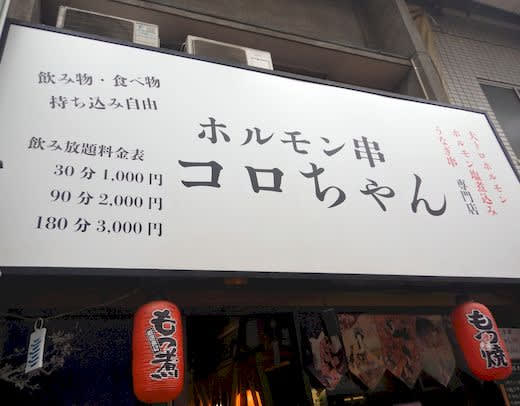 飲み物・食べ物
持ち込み自由
飲み放題料金表
30分1,000円
90分2,000円
180分3,000円
ホルモン串
コロちゃん
大トロホルモン
ホルモン塩煮込み
うなぎ串
専門店
もつ煮
もつ焼